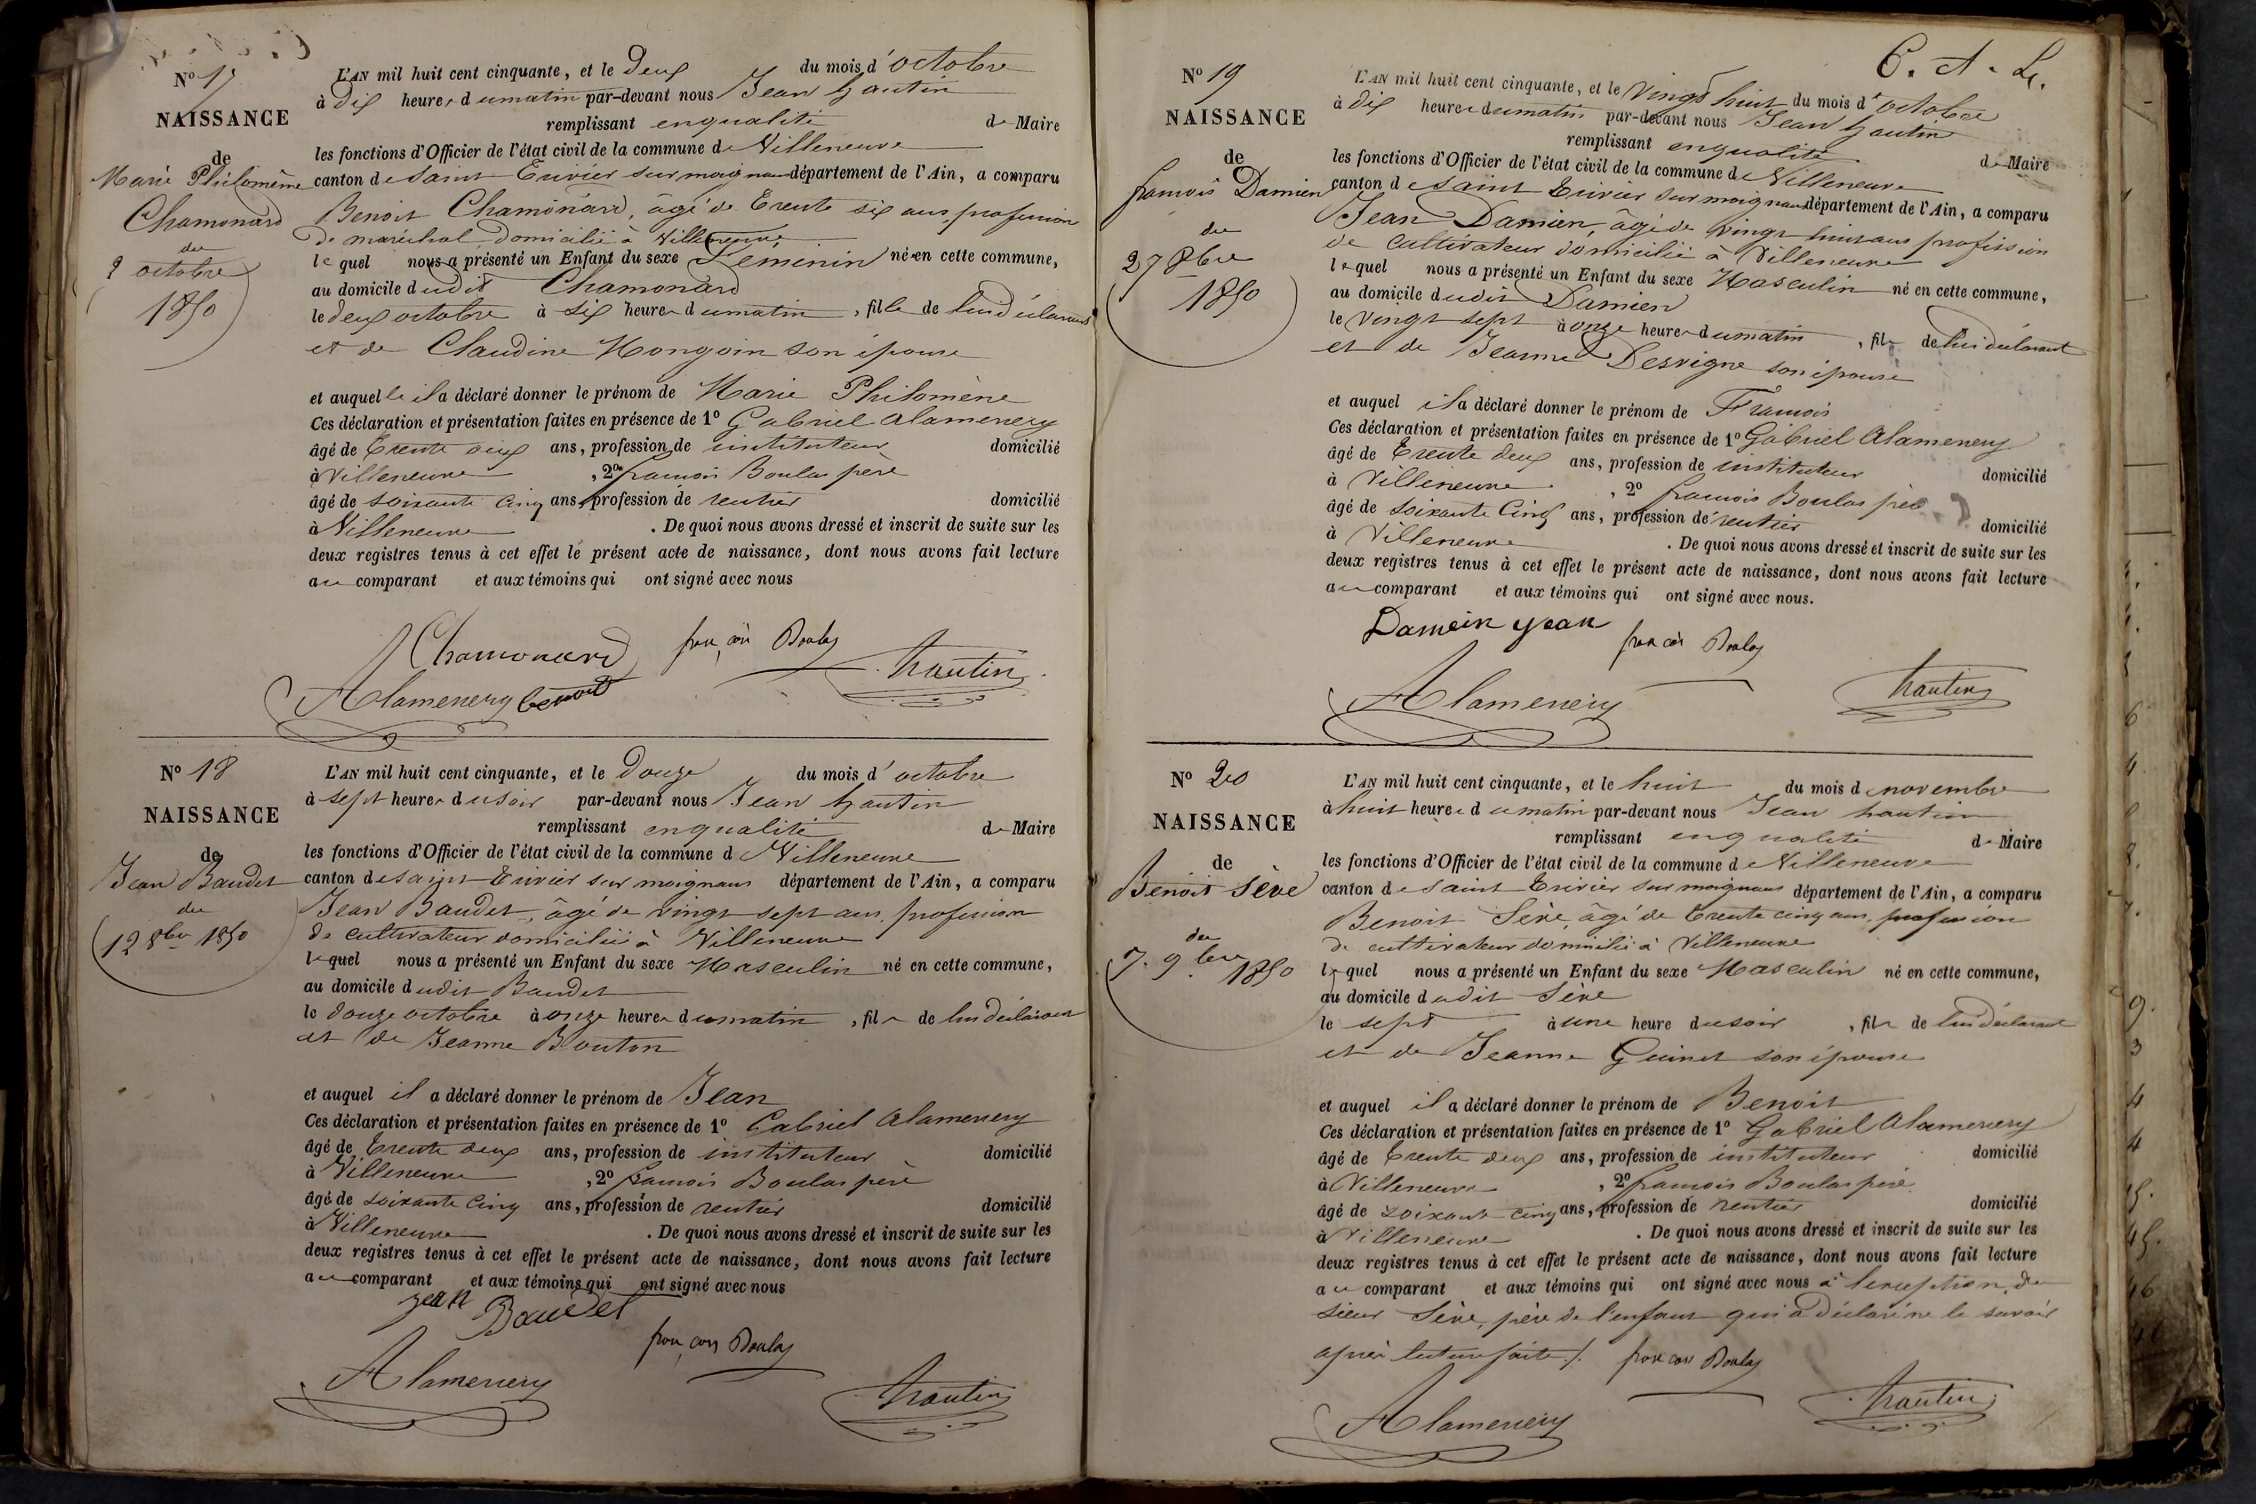 No 17
NAISSANCE
de
Marie Philomène
Chamonard
du
2 octobre
1850
L'AN mil huit cent cinquante, et le deux du mois d'octobre
à dix heures du matin par-devant nous Jean hautin
remplissant en qualité de Maire
les fonctions d'Officier de l'état civil de la commune de Villeneuve
canton de Saint Trivier sur moignans département de l'Ain, a comparu
Benoit Chamonard, âgé de trente six ans, profession
de maréchal domicilié à Villeneuve
lequel nous a présenté un Enfant du sexe Feminin né en cette commune,
au domicile dudit Chamonard
le deux octobre à six heures du matin, fille de lui déclarant
et de Claudine Mongoin son épouse
et auquelle il a déclaré donner le prénom de Marie Philomène
Ces déclaration et présentation faites en présence de 1o Gabriel Alamenery
âgé de trente deux ans, profession de instituteur domicilié
à Villeneuve, 2o francois Boulas père
âgé de soixante cinq ans, profession de rentier domicilié
à Villeneuve. De quoi nous avons dressé et inscrit de suite sur les
deux registres tenus à cet effet le présent acte de naissance, dont nous avons fait lecture
au comparant et aux témoins qui ont signé avec nous
Chamonard francois Boulas hautin
Alamenery benoit
No 18
NAISSANCE
de
Jean Baudet
du
12 8bre 1850
L'AN mil huit cent cinquante, et le douze du mois d'octobre
à sept heures du soir par-devant nous Jean hautin
remplissant en qualité de Maire
les fonctions d'Officier de l'état civil de la commune d Villeneuve
canton de saint Trivier sur moignans département de l'Ain, a comparu
Jean Baudet, âgé de vingt sept ans, profession
de cultivateur domicilié à Villeneuve
lequel nous a présenté un Enfant du sexe Masculin né en cette commune,
au domicile dudit Baudet
le douze octobre à onze heures du matin, fils de lui déclarant
et de Jeanne Bouton
et auquel il a déclaré donner le prénom de Jean
Ces déclaration et présentation faites en présence de 1o Gabriel Alamenery
âgé de trente deux ans, profession de instituteur domicilié
à Villeneuve, 2o francois Boulas père
âgé de soixante cinq ans, profession de rentier domicilié
à Villeneuve. De quoi nous avons dressé et inscrit de suite sur les
deux registres tenus à cet effet le présent acte de naissance, dont nous avons fait lecture
au comparant et aux témoins qui ont signé avec nous
Jean Baudet
francois Boulas
Alamenery hautin
No 19
NAISSANCE
de
francois Damien
du
27 8bre
1850
L'AN mil huit cent cinquante, et le vingt huit du mois d'octobre
à dix heures du matin par-devant nous Jean hautin
remplissant en qualité de Maire
les fonctions d'Officier de l'état civil de la commune de Villeneuve
canton de saint Trivier sur moignans département de l'Ain, a comparu
Jean Damien, âgé de vingt huit ans profession
de cultivateur domicilié à Villeneuve
lequel nous a présenté un Enfant du sexe Masculin né en cette commune,
au domicile dudit Damien
le vingt sept à onze heures du matin, fils de lui déclarant
et de Jeanne Desvigne son épouse
et auquel il a déclaré donner le prénom de Francois
Ces déclaration et présentation faites en présence de 1o Gabriel Alamenery
âgé de trente deux ans, profession de instituteur domicilié
à Villeneuve, 2o francois Boulas père
âgé de soixante cinq ans, profession de rentier domicilié
à Villeneuve. De quoi nous avons dressé et inscrit de suite sur les
deux registres tenus à cet effet le présent acte de naissance, dont nous avons fait lecture
au comparant et aux témoins qui ont signé avec nous.
Damein jean francois Boulas
Alamenery hautin
No 20
NAISSANCE
de
Benoit Sève
du
7. 9bre
1850
L'AN mil huit cent cinquante, et le huit du mois d novembre
à huit heures du matin par-devant nous Jean hautin
remplissant en qualité de Maire
les fonctions d'Officier de l'état civil de la commune de Villeneuve
canton de saint Trivier sur moignans département de l'Ain, a comparu
Benoit Sève, âgé de trente cinq ans, profession
de cultivateur domicilié à Villeneuve
lequel nous a présenté un Enfant du sexe Masculin né en cette commune,
au domicile dudit Sève
le sept à une heure du soir, fils de lui déclarant
et de Jeanne Guinet son épouse
et auquel il a déclaré donner le prénom de Benoit
Ces déclaration et présentation faites en présence de 1o Gabriel Alamenery
âgé de trente deux ans, profession de instituteur domicilié
à Villeneuve, 2o francois Boulas père
âgé de soixante cinq ans, profession de rentier domicilié
à Villeneuve. De quoi nous avons dressé et inscrit de suite sur les
deux registres tenus à cet effet le présent acte de naissance, dont nous avons fait lecture
au comparant et aux témoins qui ont signé avec nous à l'exception du
sieur Sève, père de l'enfant qui a déclaré ne le savoir
après lecture faite /. francois Boulas
Alamenery hautin